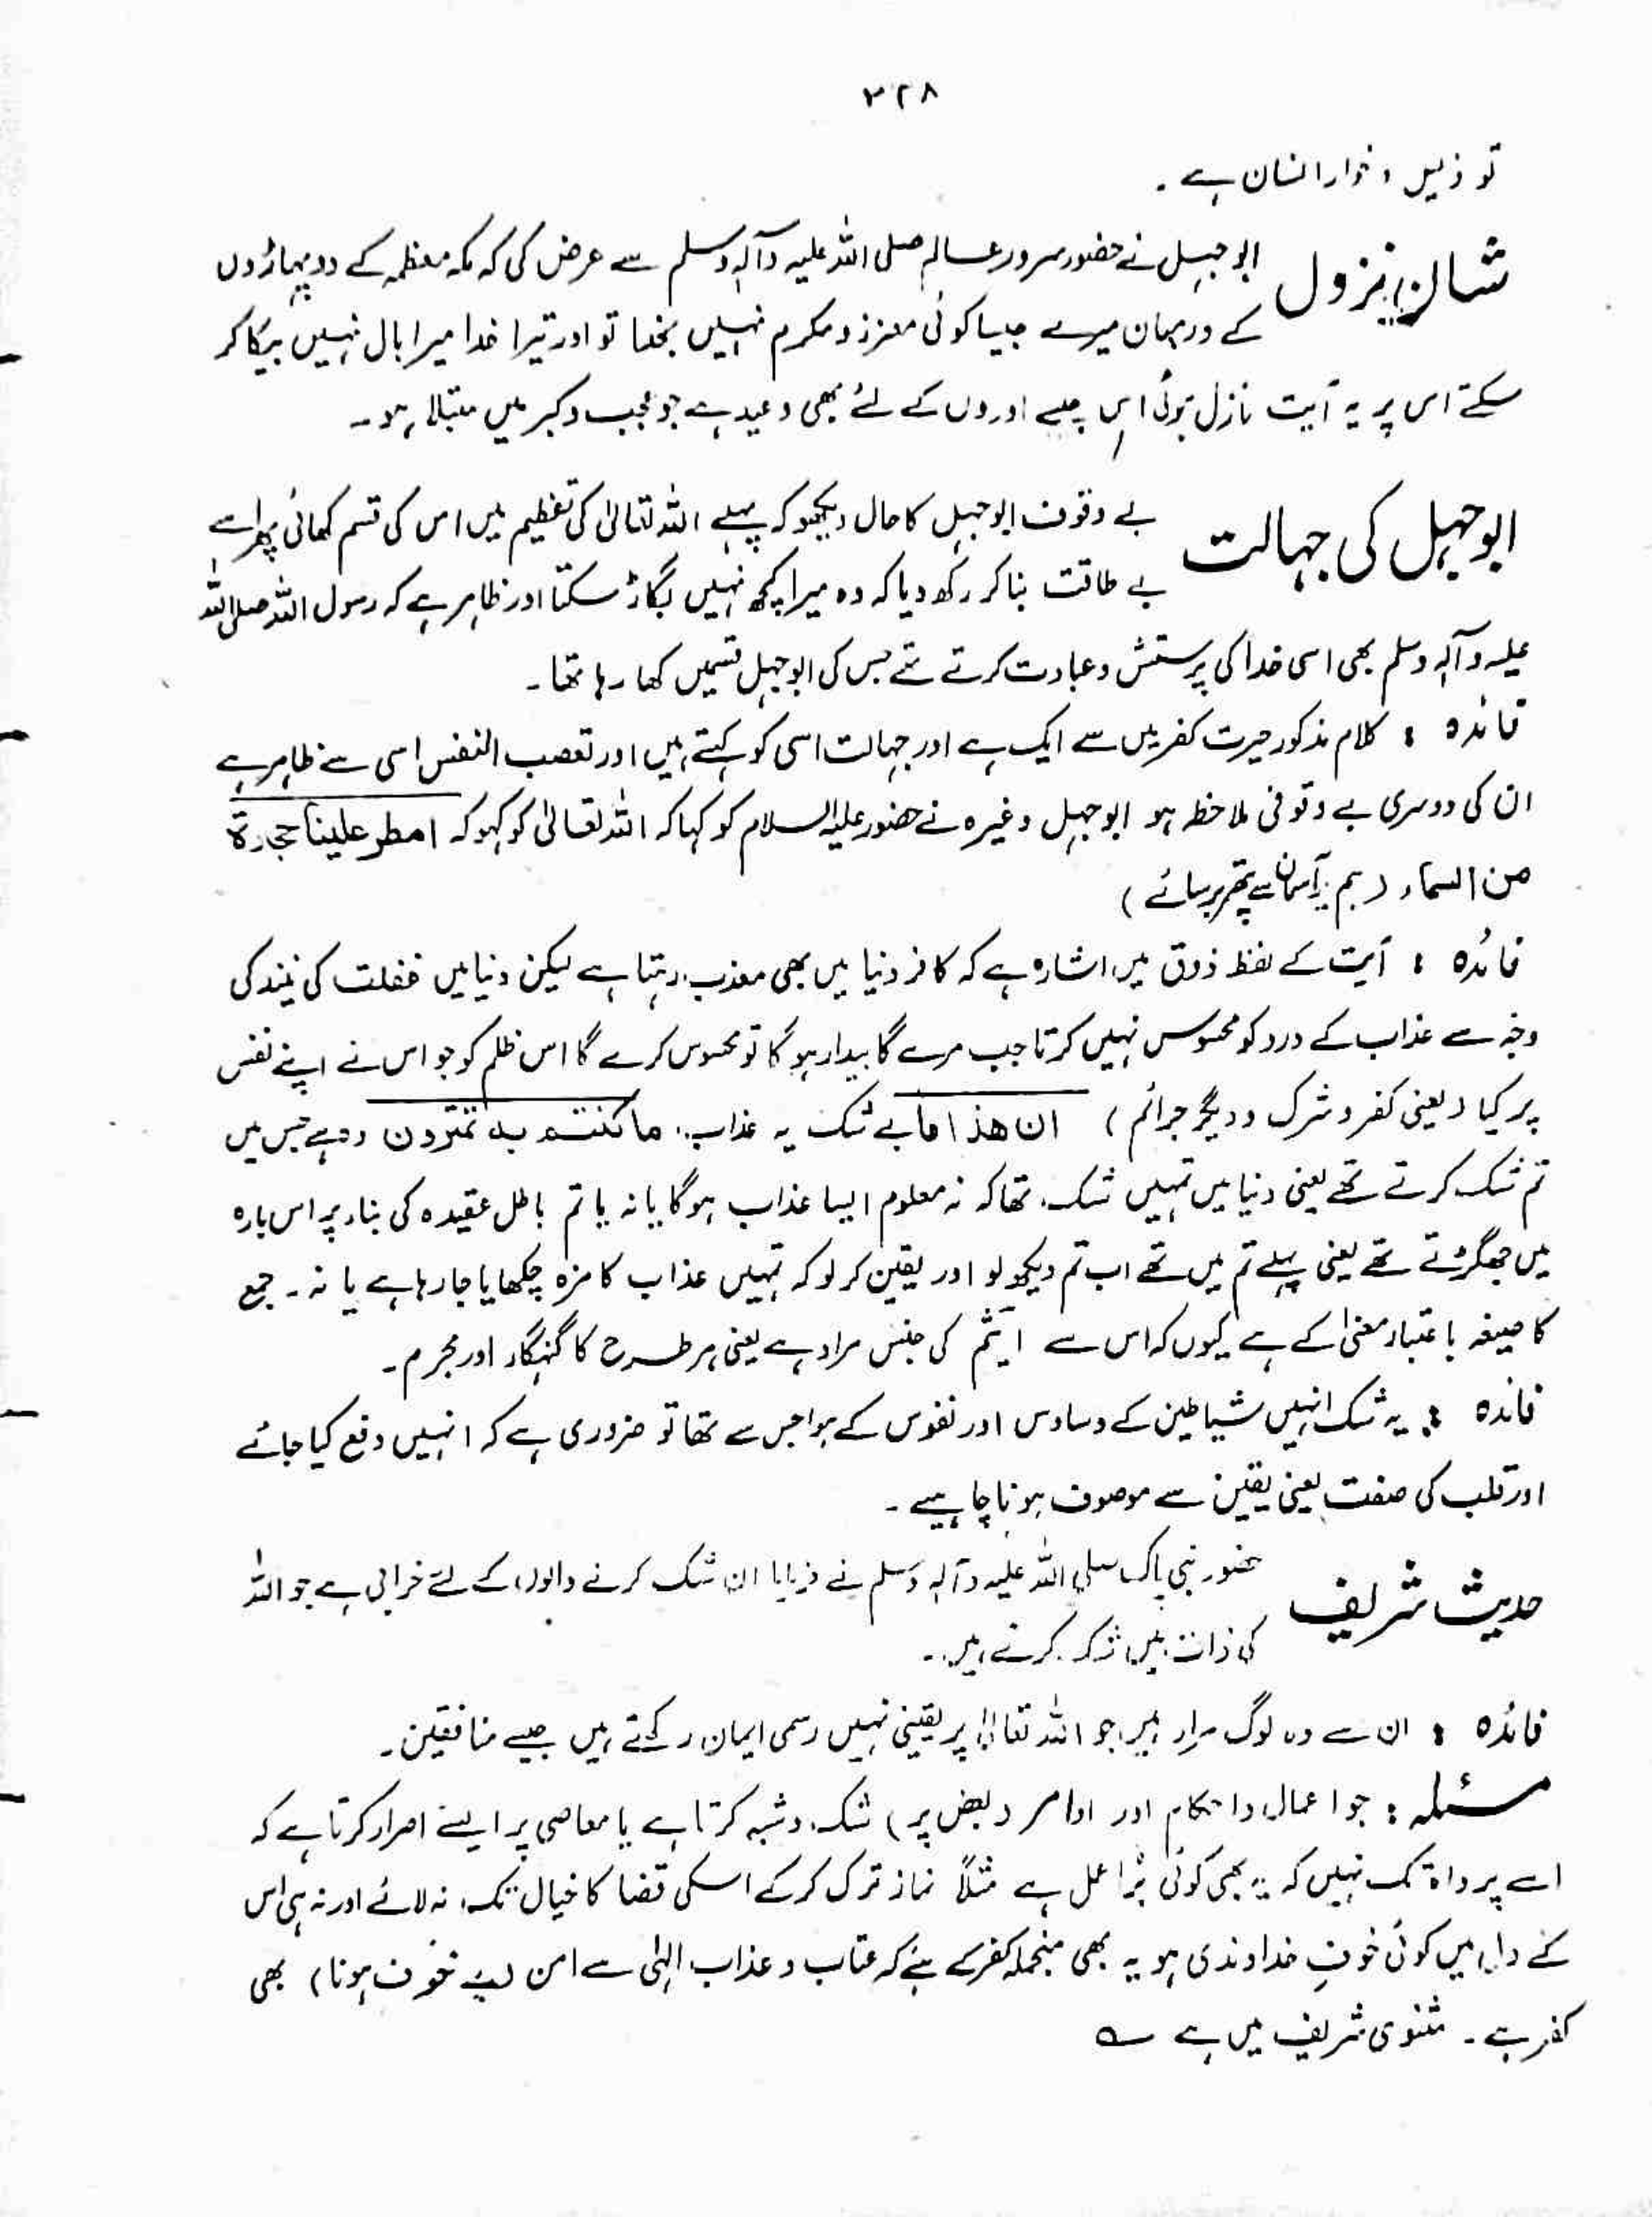 ۳۲۸
تو ذلیل و خوار انسان ہے ۔
شانِ نزول ابوجہل نے حضور سرور عالم صلی اللہ علیہ وآلہٖ وسلم سے عرض کی کہ مکہ معظمہ کے دو پہاڑوں
کے درمیان میرے جیسا کوئی معزز و مکرم نہیں بخدا تو اور تیرا خدا میرا بال نہیں بیکا کر
سکتے اس پر یہ آیت نازل ہوئی اس جیسے اوروں کے لئے بھی وعید ہے جو عجب و کبر میں مبتلا ہو ۔
ابوجہل کی جہالت بے وقوف ابوجہل کا حال دیکھو کہ پہلے اللہ تعالیٰ کی تعظیم میں اس کی قسم کھائی پھر اسے
بے طاقت بنا کر رکھ دیا کہ وہ میرا کچھ نہیں بگاڑ سکتا اور ظاہر ہے کہ رسول اللہ صلی اللہ
علیہ وآلہٖ وسلم بھی اسی خدا کی پرستش و عبادت کرتے تھے جس کی ابوجہل قسمیں کھا رہا تھا ۔
فائدہ : کلام مذکور حیرت کفر میں سے ایک ہے اور جہالت اسی کو کہتے ہیں اور تعصب النفس اسی سے ظاہر ہے
ان کی دوسری بے وقوفی ملاحظہ ہو ابوجہل وغیرہ نے حضور علیہ السلام کو کہا کہ اللہ تعالیٰ کو کہو کہ امطر علینا حجارۃ
من السماء (ہم پر آسمان سے پتھر برسائے)
فائدہ : آیت کے لفظ ذوق میں اشارہ ہے کہ کافر دنیا میں بھی معذب رہتا ہے لیکن دنیا میں غفلت کی نیند کی
وجہ سے عذاب کے درد کو محسوس نہیں کرتا جب مرے گا بیدار ہو گا تو محسوس کرے گا اس ظلم کو جو اس نے اپنے نفس
پر کیا (یعنی کفر و شرک و دیگر جرائم) ان ھذا ما بے شک یہ عذاب ۔ ما کنتم بہ تمترون وہ ہے جس میں
تم شک کرتے تھے یعنی دنیا میں تمہیں شک تھا کہ نہ معلوم ایسا عذاب ہو گا یا نہ یا تم باطل عقیدہ کی بناء پر اس بارہ
میں جھگڑتے تھے یعنی پہلے تم میں تھے اب تم دیکھ لو اور یقین کر لو کہ تمہیں عذاب کا مزہ چکھایا جا رہا ہے یا نہ ۔ جمع
کا صیغہ باعتبار معنیٰ کے ہے کیوں کہ اس سے اثیم کی جنس مراد ہے یعنی ہر طرح کا گنہگار اور مجرم ۔
فائدہ : یہ شک انہیں شیاطین کے وساوس اور نفوس کے ہواجس سے تھا تو ضروری ہے کہ انہیں دفع کیا جائے
اور قلب کی صفت یعنی یقین سے موصوف ہونا چاہیے ۔
حدیث شریف حضور نبی پاک صلی اللہ علیہ وآلہٖ وسلم نے فرمایا ان شک کرنے والوں کے لئے خرابی ہے جو اللہ
کی ذات میں شک کرتے ہیں ۔
فائدہ : ان سے وہ لوگ مراد ہیں جو اللہ تعالیٰ پر یقینی نہیں رسمی ایمان رکھتے ہیں جیسے منافقین ۔
مسئلہ : جو اعمال و احکام اور اوامر (بعض پر) شک و شبہ کرتا ہے یا معاصی پر ایسے اصرار کرتا ہے کہ
اسے پرواہ تک نہیں کہ یہ بھی کوئی بُرا عمل ہے مثلاً نماز ترک کر کے اسکی قضا کا خیال تک نہ لائے اور نہ ہی اس
کے دل میں کوئی خوفِ خداوندی ہو یہ بھی منجملہ کفر کے ہے کہ عتاب و عذاب الٰہی سے امن (بے خوف ہونا) بھی
کفر ہے ۔ مثنوی شریف میں ہے ؎